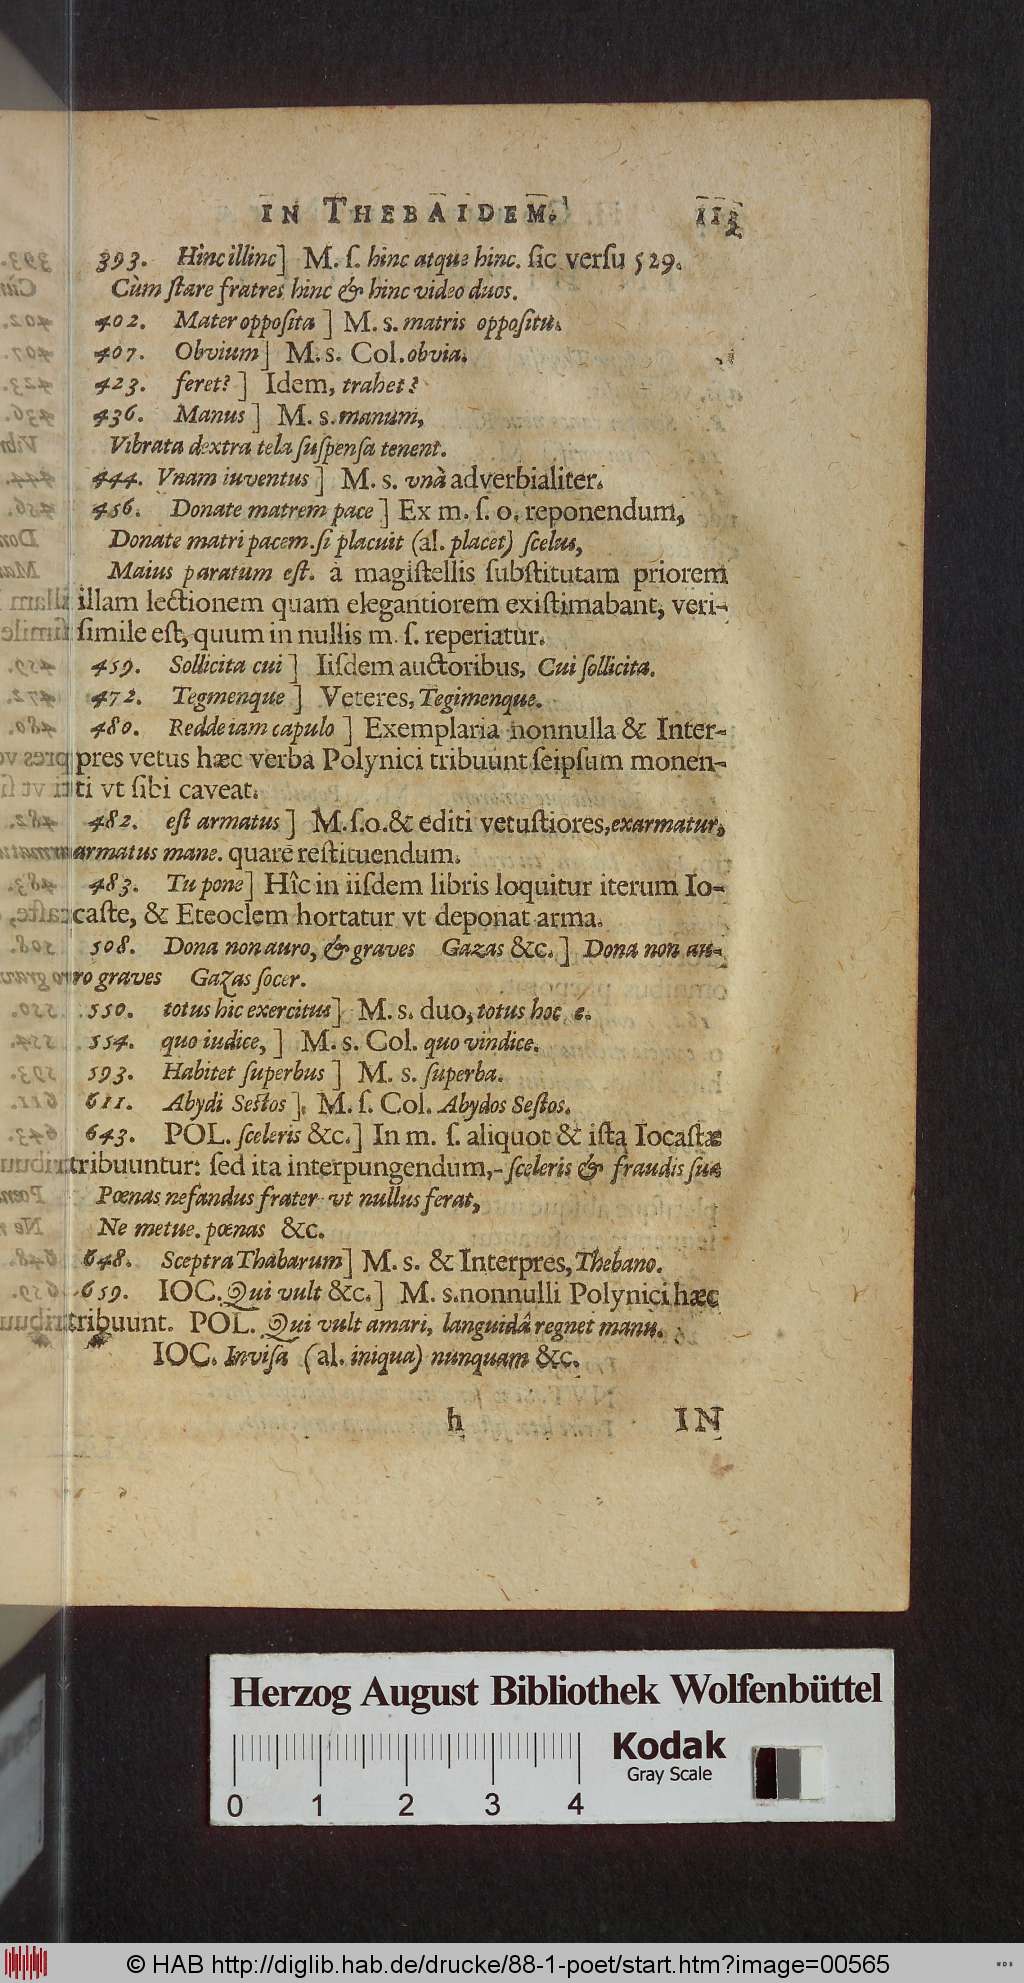 IN THEBAIDEM. 113
393. Hinc illinc] M. ſ. hinc atque hinc. ſic verſu 529.
Cùm ſtare fratres hinc & hinc video duos.
402. Mater oppoſita] M. s. matris oppoſitu.
407. Obvium] M. s. Col. obvia.
423. feret?] Idem, trahet?
436. Manus] M. s. manum,
Vibrata dextra tela ſuſpenſa tenent.
444. Vnam iuventus] M. s. vnà adverbialiter.
456. Donate matrem pace] Ex m. ſ. o. reponendum,
Donate matri pacem. ſi placuit (al. placet) ſcelus,
Maius paratum eſt. à magiſtellis ſubſtitutam priorem
illam lectionem quam elegantiorem exiſtimabant, veri-
ſimile eſt, quum in nullis m. ſ. reperiatur.
459. Sollicita cui] Iiſdem auctoribus, Cui ſollicita.
472. Tegmenque] Veteres, Tegimenque.
480. Redde iam capulo] Exemplaria nonnulla & Inter-
pres vetus hæc verba Polynici tribuunt ſeipſum monen-
ti vt ſibi caveat.
482. eſt armatus] M. ſ. o. & editi vetuſtiores, exarmatur,
armatus mane. quare reſtituendum.
483. Tu pone] Hîc in iiſdem libris loquitur iterum Io-
caſte, & Eteoclem hortatur vt deponat arma.
508. Dona non auro, & graves Gazas &c.] Dona non au-
ro graves Gazas ſocer.
550. totus hic exercitus] M. s. duo, totus hoc e.
554. quo iudice,] M. s. Col. quo vindice.
593. Habitet ſuperbus] M. s. ſuperba.
611. Abydi Seſtos] M. ſ. Col. Abydos Seſtos.
643. POL. ſceleris &c.] In m. ſ. aliquot & iſta Iocaſtæ
tribuuntur: ſed ita interpungendum,-ſceleris & fraudis ſuæ
Pœnas nefandus frater vt nullus ferat,
Ne metue. pœnas &c.
648. Sceptra Thabarum] M. s. & Interpres, Thebano.
659. IOC. Qui vult &c.] M. s. nonnulli Polynici hæc
tribuunt. POL. Qui vult amari, languidâ regnet manu.
IOC. Inviſa (al. iniqua) nunquam &c.
h IN
Herzog August Bibliothek Wolfenbüttel
Kodak
Gray Scale
0 1 2 3 4
© HAB http://diglib.hab.de/drucke/88-1-poet/start.htm?image=00565